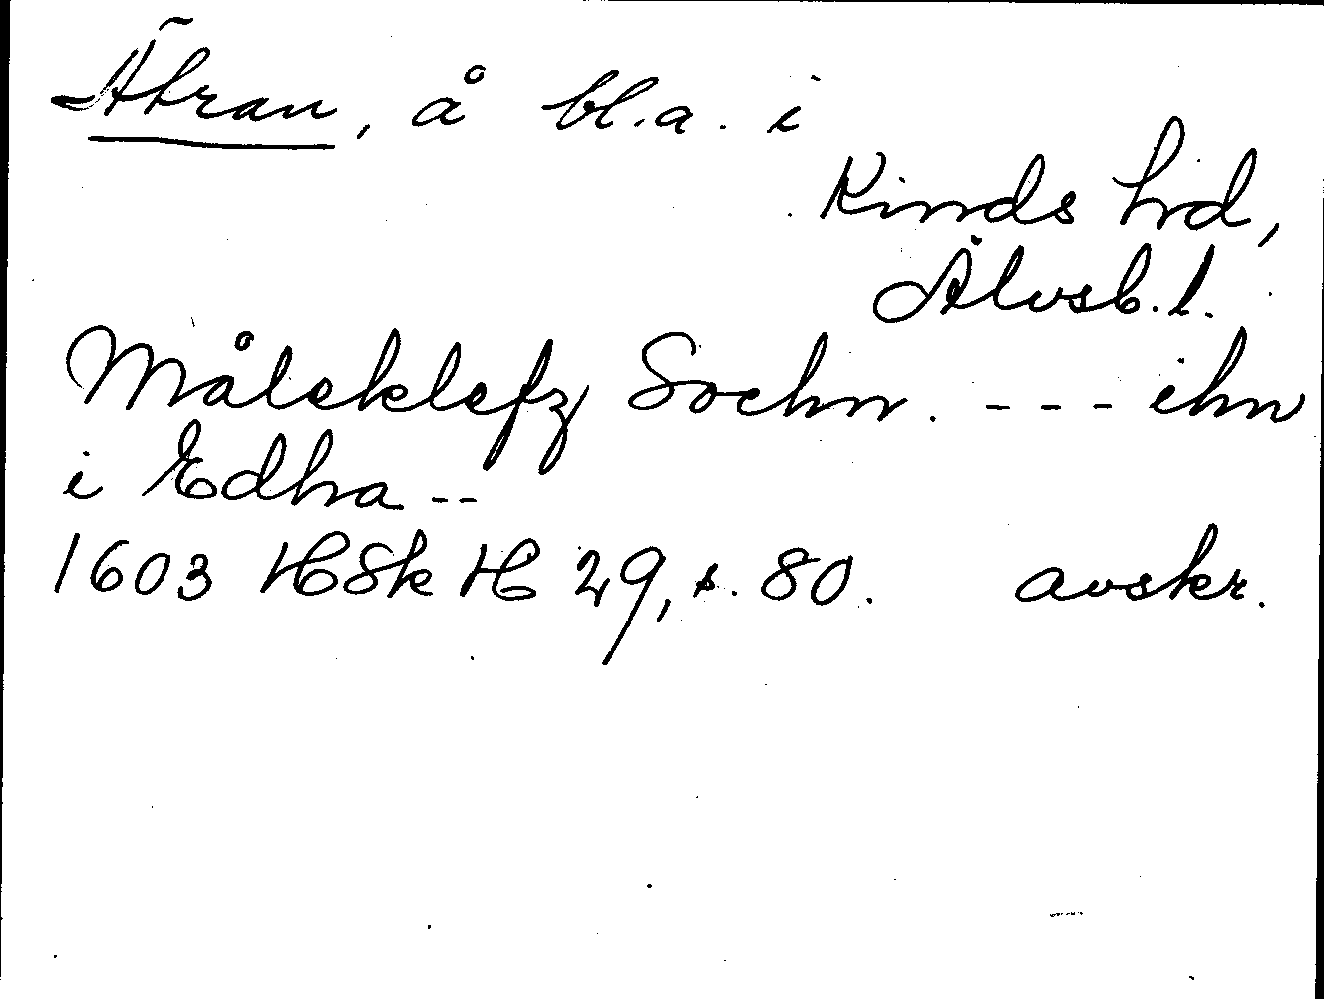 Ätran, å bl.a. i
Kinds hd,
Älvsb. l.
Måleklefz Sochn. --- ihn
i Edhra --
1603 HSkH 29, s. 80. avskr.